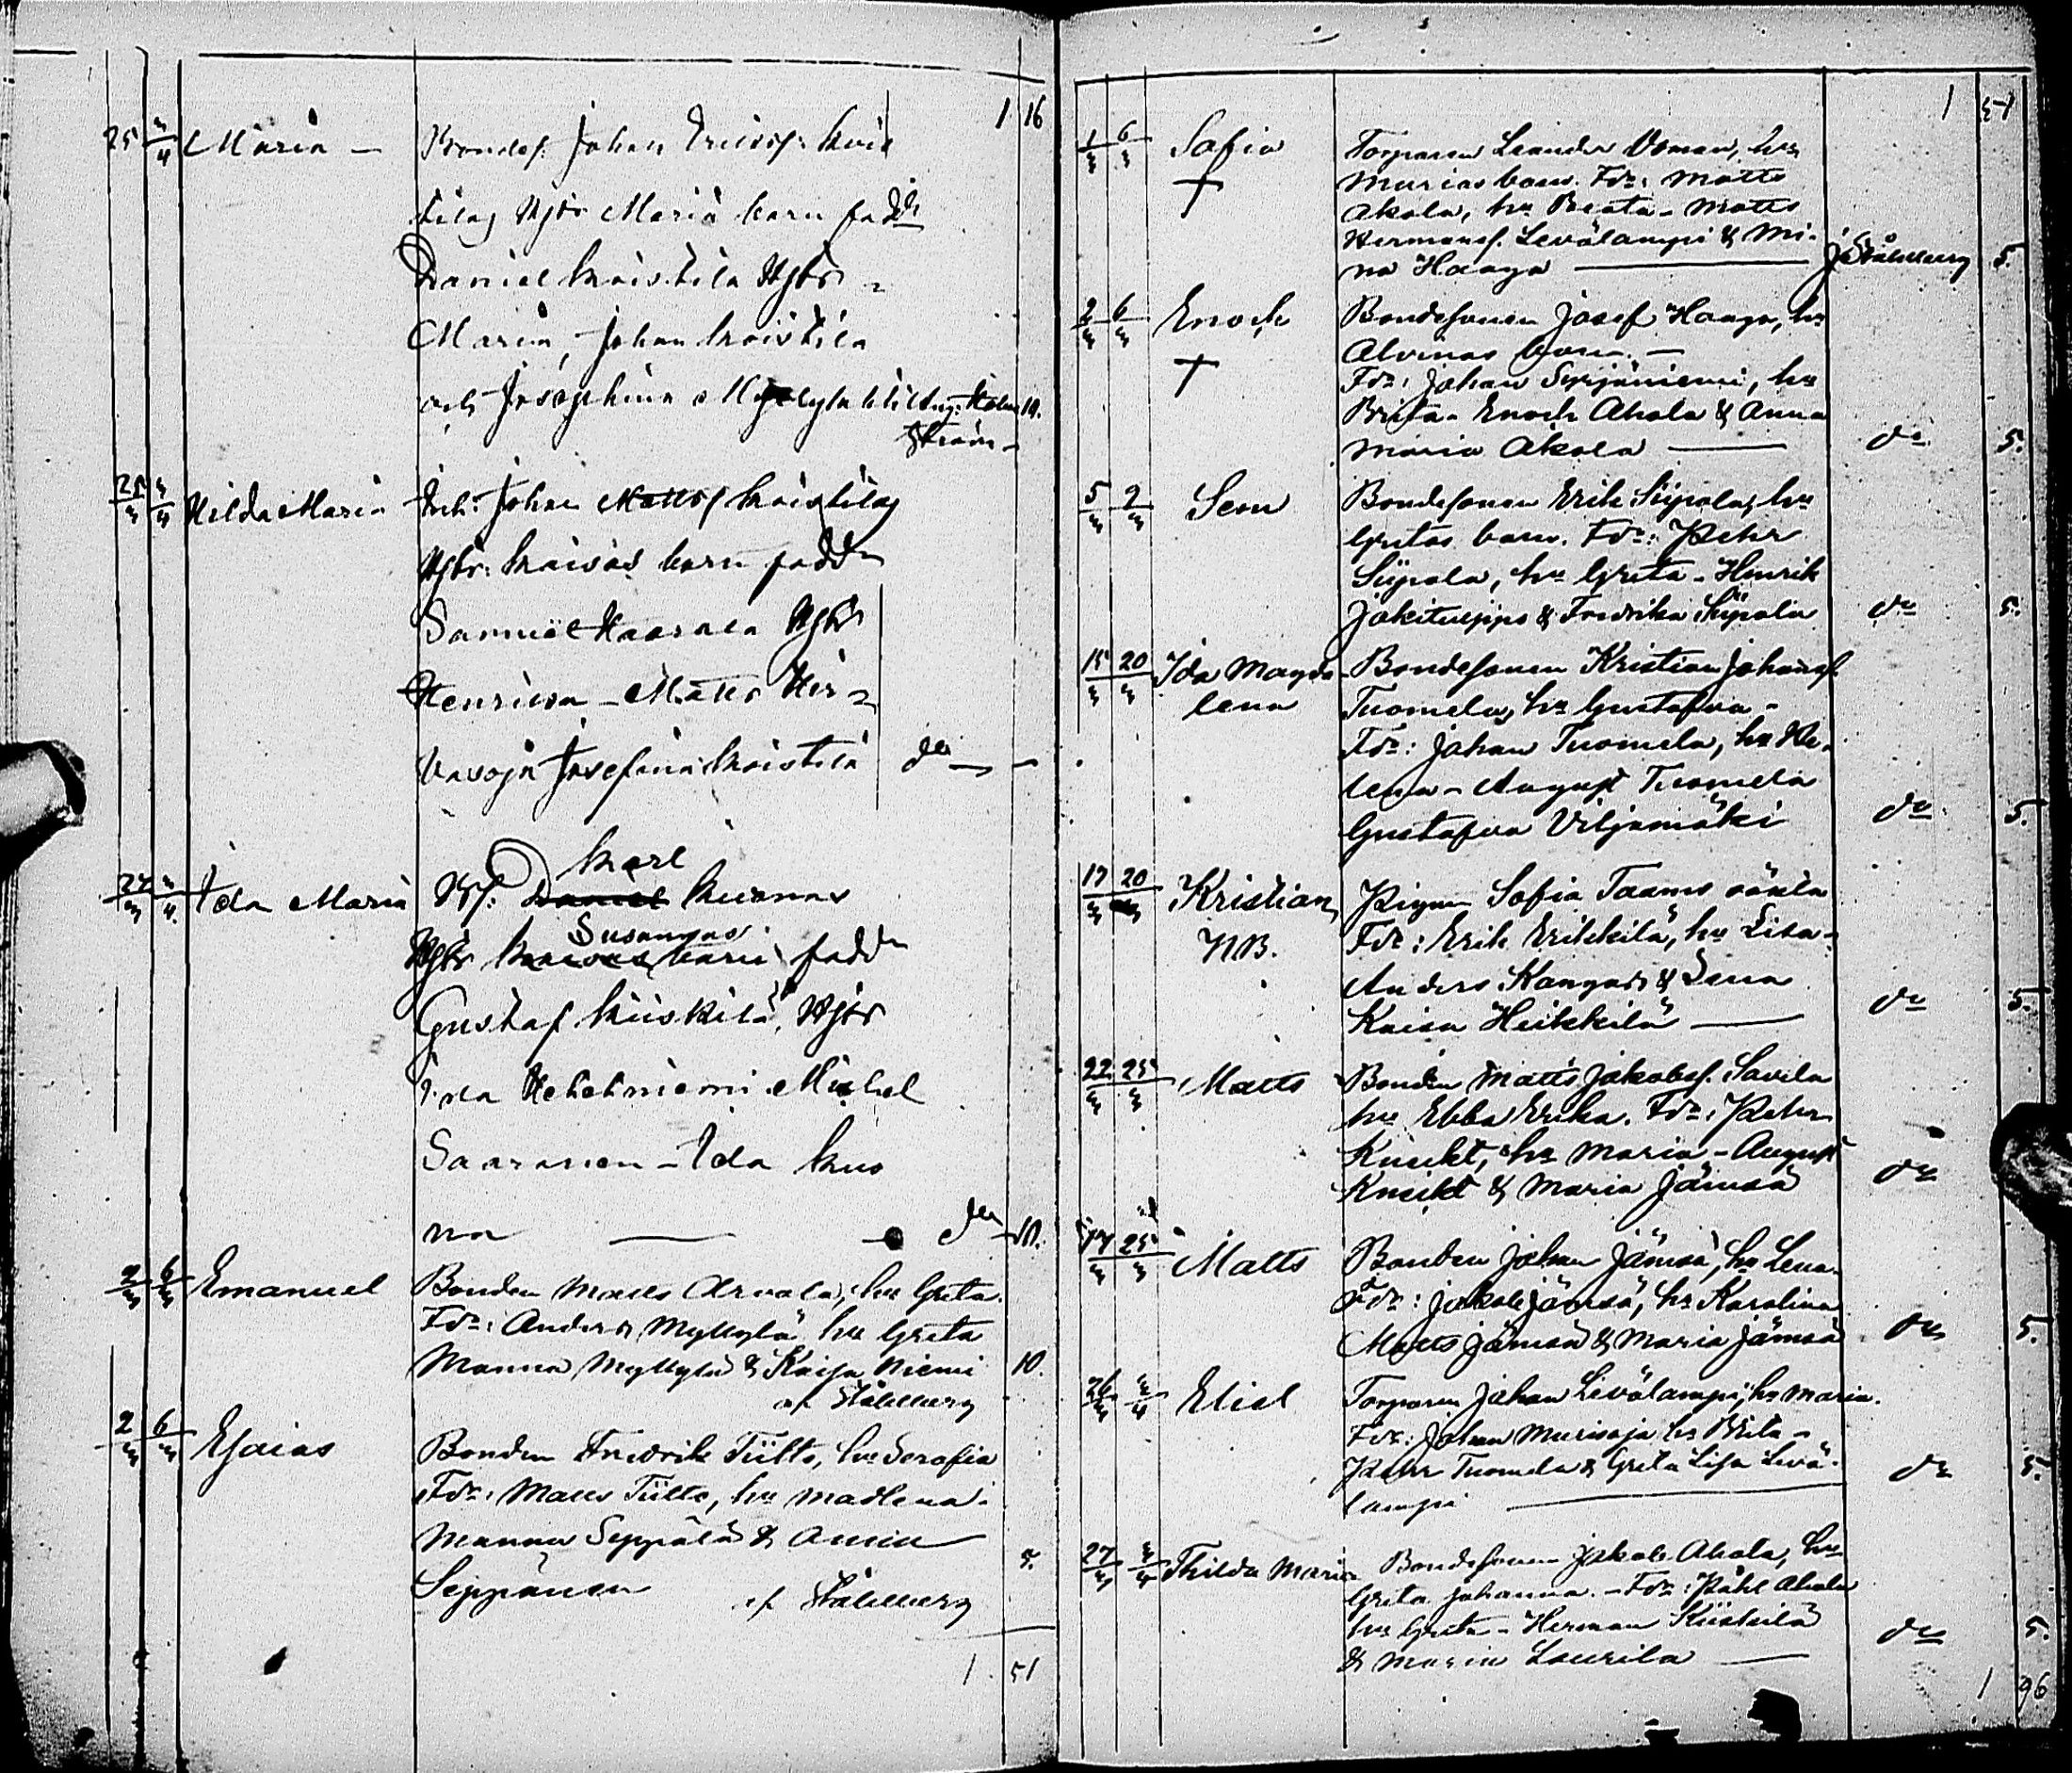 1 16
25 4/4 Maria — Bondes. Johan Ericss: Kois
tilas Hstr Maria barn fadd:
Daniel Koistila Hstr
Maria, Johan Koistila
och Josephina Myllylä 10.
25/3 4/4 Hilda Maria Inh. Johan Mattss Koistilas
Hstr: Kaisas barn fadd
Samuel Haarala Hstr
Henrica – Matts Hir
vasoja Josefina Koistila do —
Karl
27/3 4. Ida Maria Daniel Kuonas
Susannas
Hstr barn fadd
Gustaf Kiiskilä, Hstr
Michel
Saaranen – Ida Kuo
na — do 10.
2/3 6/3 Emanuel Bonden Matts Arvola, hu Greta.
Fdr: Anders Myllylä hu Greta
Manna Myllylä & Kaisa Niemi 10.
af Ståhlberg
2/3 6/3 Esaias Bonden Fredrik Tiitto, hu Serafia
Fdr: Matts Tiitto, hu Madlena.
Manna Seppälä & Anna
Seppänen af Ståhlberg 5.
1. 51
1 51
1/3 6/3 Sofia Torparen Leander Öman, hu
+ Marias barn. Fdr: Matts
Akola, hu Beata – Matts
Hermans. Levälampi & Mi-
na Haaga — J Ståhlberg 5.
2/3 6/3 Enoch Bondesonen Josef Haaga, hu
Alvinas barn. —
+ Fdr: Johan Syrjäniemi, hu
Brita – Enoch Ahola & Anna
Maria Akola — do 5.
5/3 9/3 Sem Bondesonen Erik Siipola, hu
Gretas barn. Fdr: Pehr
Siipola, hu Greta – Henrik
Jokitulppo & Fredrika Siipola do 5.
15/3 20/3 Ida Magda Bondesonen Kristian Johanss.
lena Tuomela, hu Gustafva –
Fdr: Johan Tuomela, hu He-
lena – August Tuomela
Gustafva Viljamäki do 5.
17/3 20/3 Kristian Pigan Sofia Taams oäkta
NB. Fdr: Erik Erikkilä, hu Lisa –
Anders Kangas & Lena
Kaisa Heikkilä — do 5.
22/3 25/3 Matts Bonden Matts Jakobss. Savela
hu Ebba Erika. Fdr: Pehr
Knekt, hu Maria – August
Knekt & Maria Jämsä do
17/3 25/3 Matts Bonden Johan Jämsä, hu Lena.
Fdr: Jakob Jämsä, hu Karolina
Matts Jämsä & Maria Jämsä do 5.
26/3 4 Eliel Torparen Johan Levälampi, hu Maria.
Fdr: Johan Murisoja hu Brita –
Pehr Tuomela & Greta Lisa Levä-
lampi — do 5.
27/3 4 Thilda Maria Bondesonen Jakob Ahola, hu
Greta Johanna. – Fdr: Påhl Ahola
hu Greta – Herman Kiiskilä
& Maria Laurila — do 5.
1 96